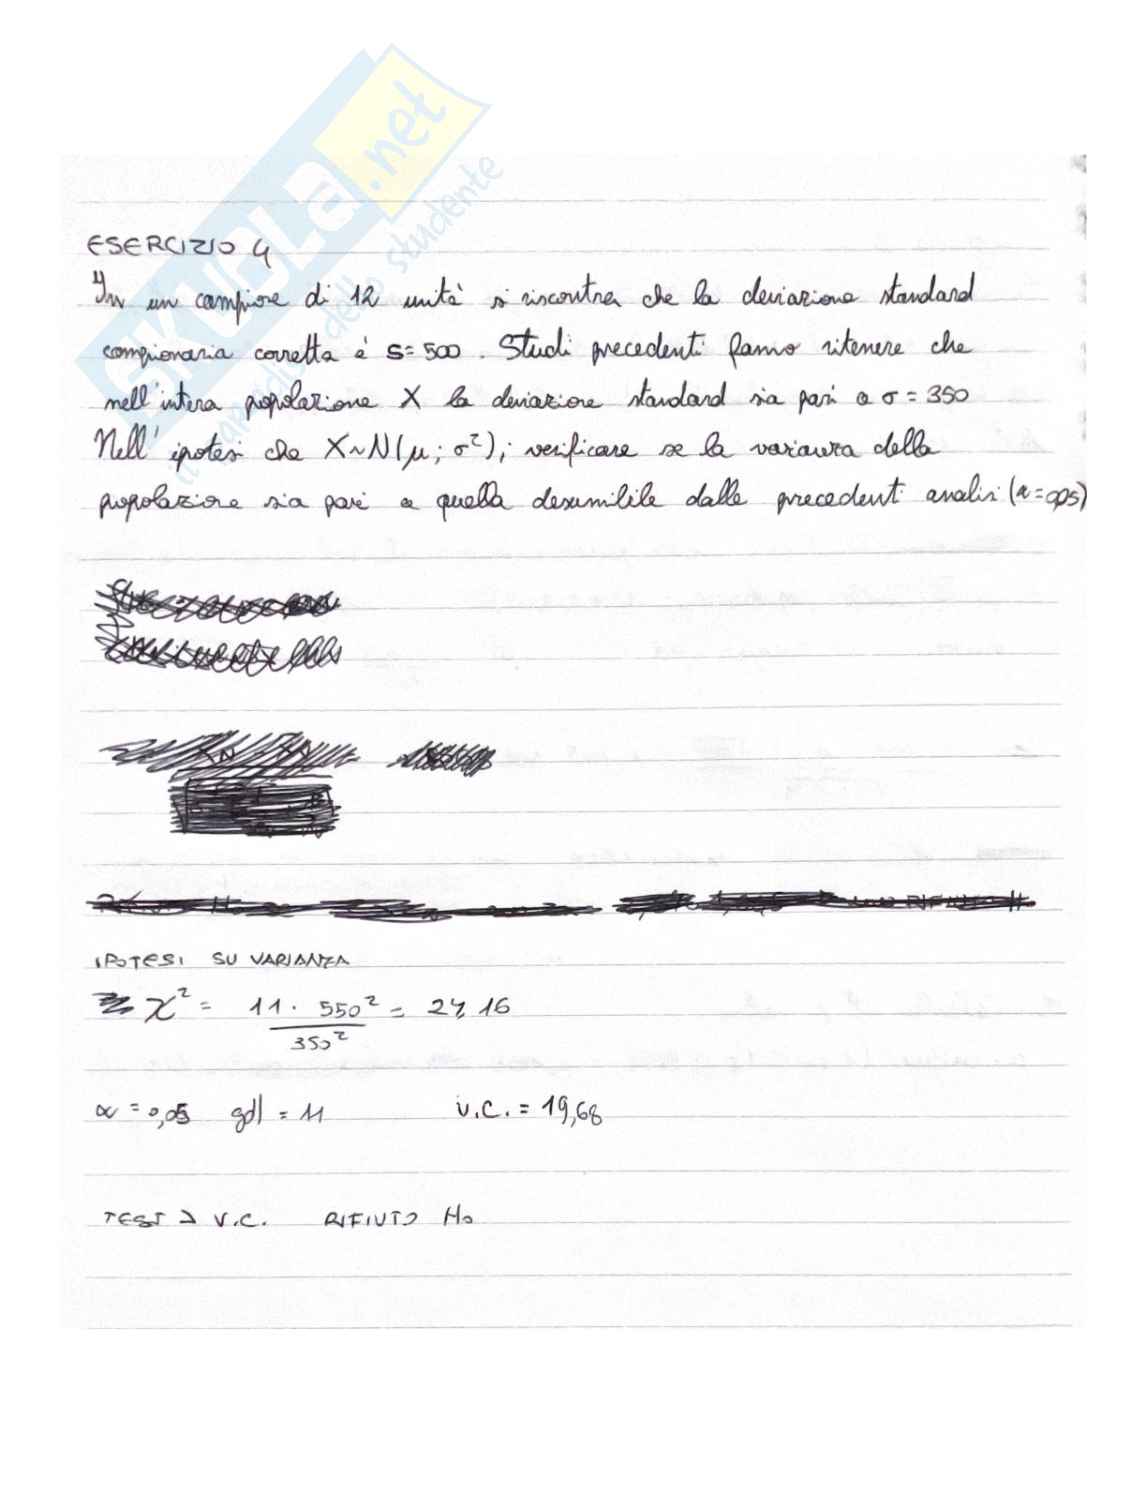 SKUOLA.net
il paradiso dello studente
ESERCIZIO 4
In un campione di 12 unità si riscontra che la deviazione standard
campionaria corretta è s=500. Studi precedenti fanno ritenere che
nell'intera popolazione X la deviazione standard sia pari a σ = 350
Nell'ipotesi che X~N(μ; σ²); verificare se la varianza della
popolazione sia pari a quella desumibile dalle precedenti analisi (α=0,05)
IPOTESI SU VARIANZA
χ² = 11 · 550² / 350² = 27,16
α = 0,05 gdl = 11 v.c. = 19,68
TEST > V.C. RIFIUTO H₀